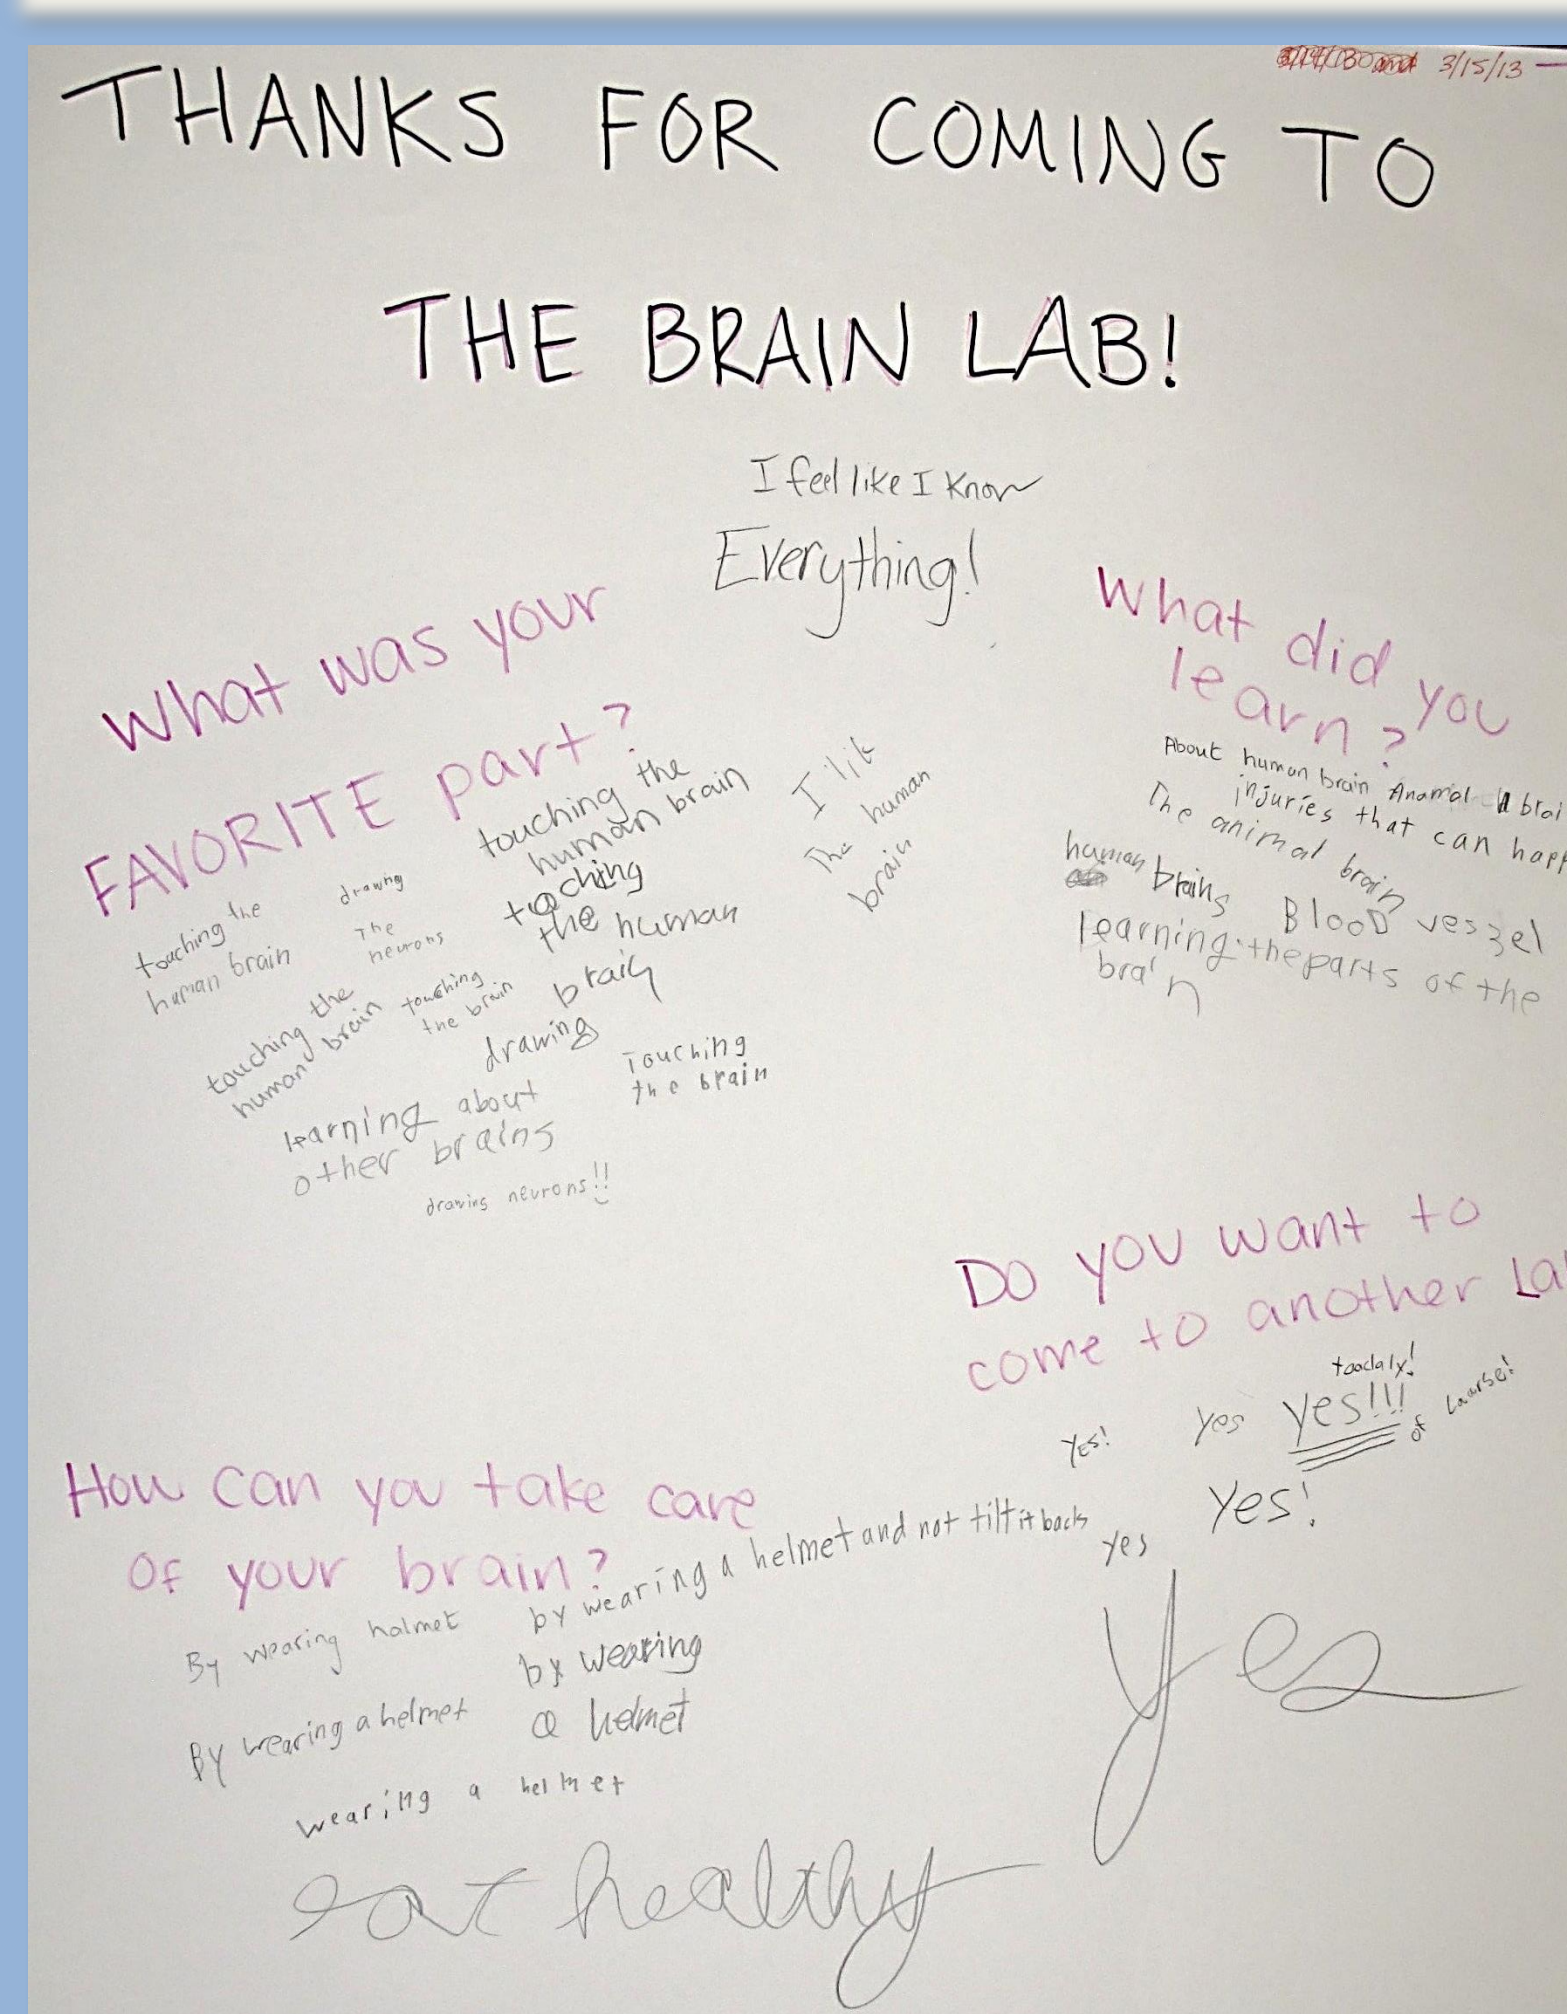 3/15/13
THANKS FOR COMING TO
THE BRAIN LAB!
I feel like I know
Everything!
What was your
FAVORITE part?
touching the
human brain
drawing
The
neurons
touching the
human brain
toching
the human
brain
I lik
The human
brain
touching the
human brain
touching
the brain
drawing
Touching
the brain
learning about
other brains
drawing neurons!!
What did you
learn?
About human brain Anamal brai
injuries that can happ
The animal brain
human brains
Blood veszel
learning the parts of the
brain
Do you want to
come to another La
toadaly!
Yes!
yes
yes!!!
of
yes!
yes
Yes
How can you take care
of your brain?
by wearing a helmet and not tilt it back
By wearing halmet
by wearing
a helmet
By wearing a helmet
wearing a helmet
eat healthy